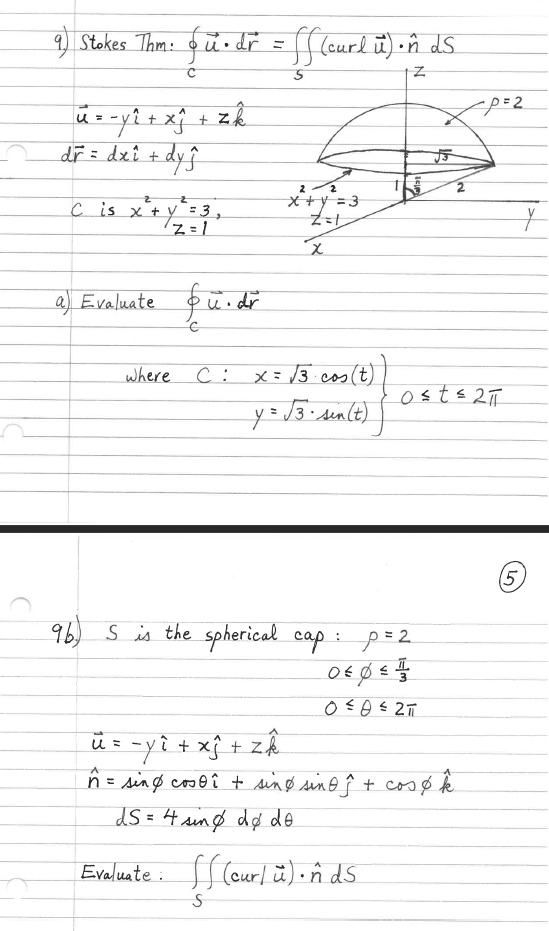 9) Stokes Thm: ∮_C u⃗ · dr⃗ = ∬_S (curl u⃗) · n̂ dS
z
ρ = 2
u⃗ = -yî + xĵ + zk̂
dr⃗ = dxî + dyĵ
√3
1
π/3
2
C is x² + y² = 3,
z = 1
x² + y² = 3
z = 1
y
x
a) Evaluate ∮_C u⃗ · dr⃗
where C : x = √3 · cos(t)
y = √3 · sin(t)
} 0 ≤ t ≤ 2π
5
9b) S is the spherical cap : ρ = 2
0 ≤ φ ≤ π/3
0 ≤ θ ≤ 2π
u⃗ = -yî + xĵ + zk̂
n̂ = sinφ cosθ î + sinφ sinθ ĵ + cosφ k̂
dS = 4 sinφ dφ dθ
Evaluate : ∬_S (curl u⃗) · n̂ dS